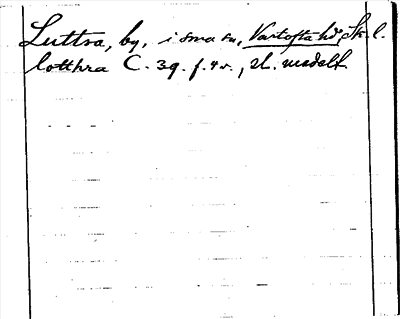 Luttra, by, i sma sn, Vartofta hd, Sk. l.
lotthra C. 39. f. 4 v., sl. medelt.